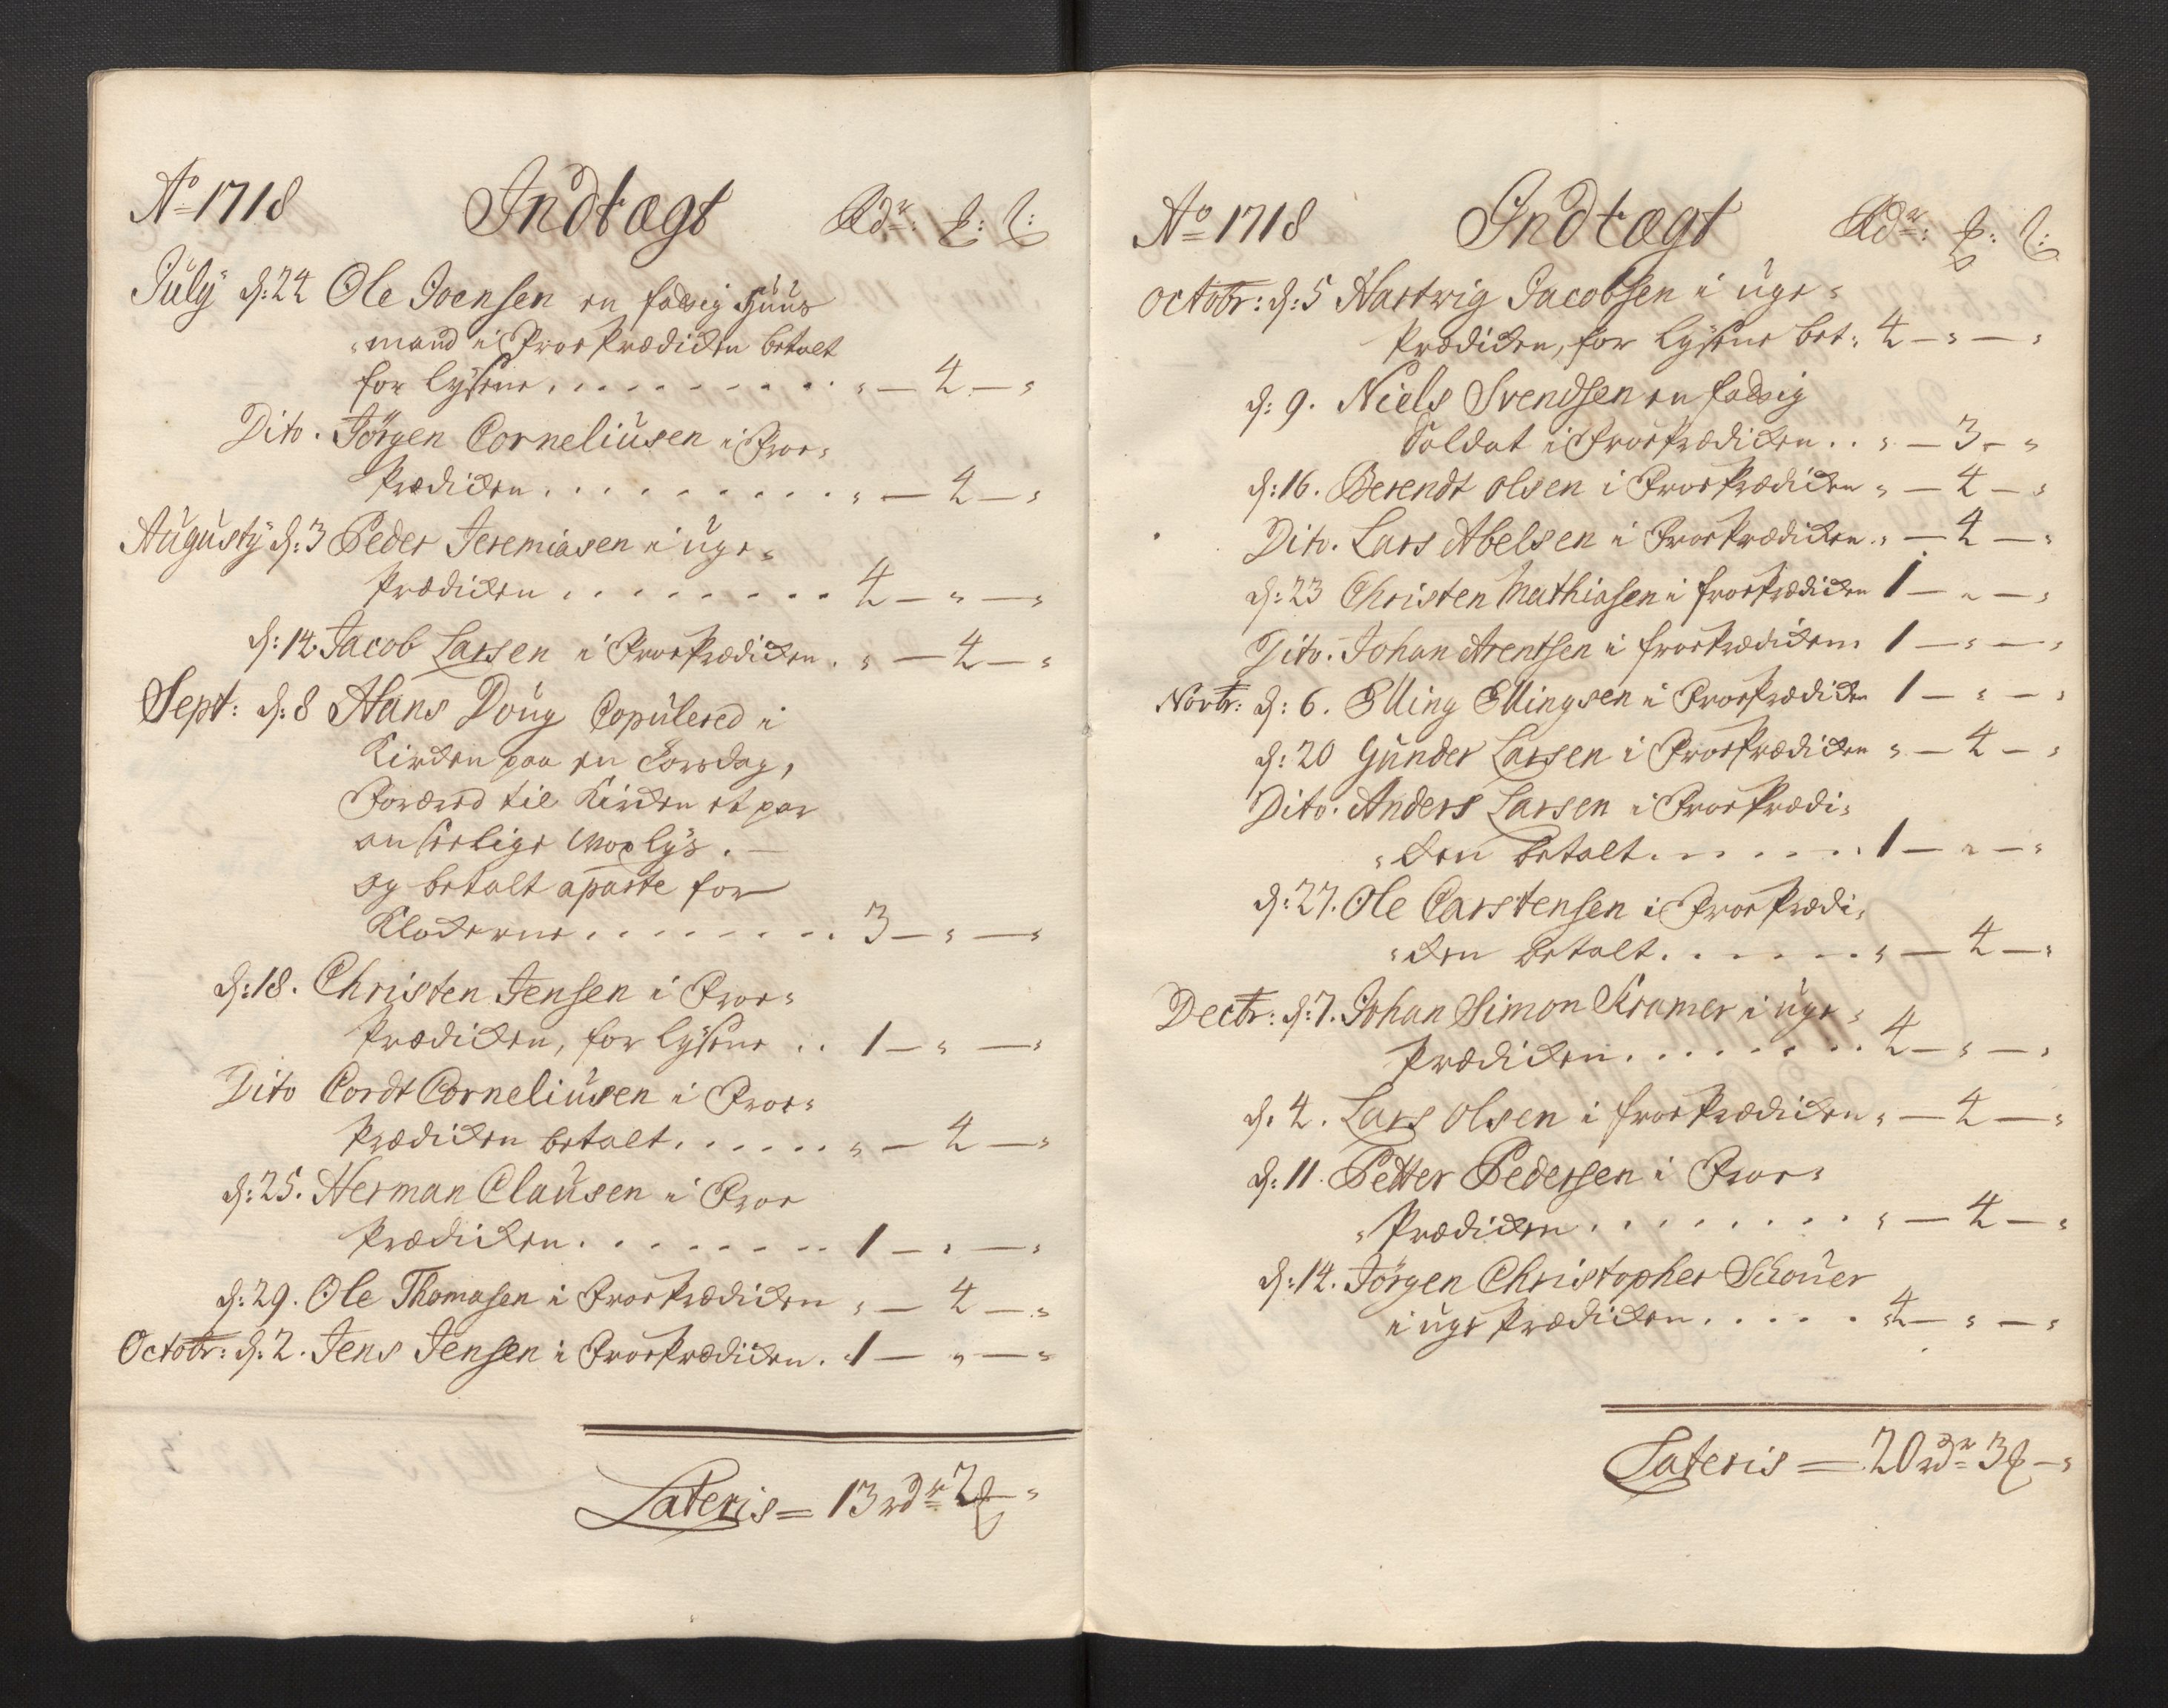 Aō 1718 Indtægt Rdr: ℔: ß:
July d: 24 Ole Joensen en fattig Huus
mand i Froe Prædiken betalt
for lysene . . . . . . . . . . „ — 4 — „
Dito. Jörgen Corneliusen i Froe-
Prædiken . . . . . . . . . . „ — 4 — „
Augusty d: 3 Peder Jeremiasen i uge-
Prædiken . . . . . . . . . 4 — „ — „
d: 14. Jacob Larsen i Froe Prædiken . „ — 4 — „
Sept: d: 8 Hans Doug Copulered i
Kirken paa en Torsdag,
Foræred til Kirken et par
anseelige Wox lys. —
og betalt aparte for
Klokerne . . . . . . . . 3 — „ — „
d: 18. Christen Jensen i Froe-
Prædiken, for lysene . . 1 — „ — „
Dito Cordt Corneliusen i Froe-
Prædiken betalt . . . . . . „ — 4 — „
d: 25. Herman Clausen i Froe
Prædiken . . . . . . . . 1 — „ — „
d: 29. Ole Thomasen i Froe Prædiken „ — 4 — „
Octobr: d: 2. Jens Jensen i Froe Prædiken . 1 — „ — „
Lateris = 13 rdr 2 ℔ — „
Aō 1718 Indtægt Rdr: ℔: ß:
Octobr: d: 5 Hartwig Jacobsen i uge-
Prædiken, for lysene bet: 4 — „ — „
d: 9. Niels Svendsen en fattig
Soldat i Froe Prædiken . . „ — 3 — „
d: 16. Berendt olsen i Froe Prædiken „ — 4 — „
Dito. Lars Abelsen i Froe Prædiken . „ — 4 — „
d: 23 Christen Mathiasen i froe Prædiken 1 — „ — „
Dito. Johan Arentsen i froe Prædiken 1 — „ — „
Novbr: d: 6. Elling Ellingsen i Froe Prædiken 1 — „ — „
d: 20 Gunder Larsen i Froe Prædiken „ — 4 — „
Dito. Anders Larsen i Froe Prædi-
ken betalt . . . . . . . 1 — „ — „
d: 27. Ole Carstensen i Froe Prædi-
ken betalt . . . . . . . „ — 4 — „
Decbr: d: 7. Johan Simon Kramer i uge-
Prædiken . . . . . . . . 4 — „ — „
d. 4. Lars Olsen i froe Prædiken „ — 4 — „
d: 11. Petter Pedersen i Froe-
Prædiken . . . . . . . . „ — 4 — „
d: 14. Jörgen Christopher Schouer
i uge Prædiken . . . . . 4 — „ — „
Lateris = 20 rdr 3 ℔ — „